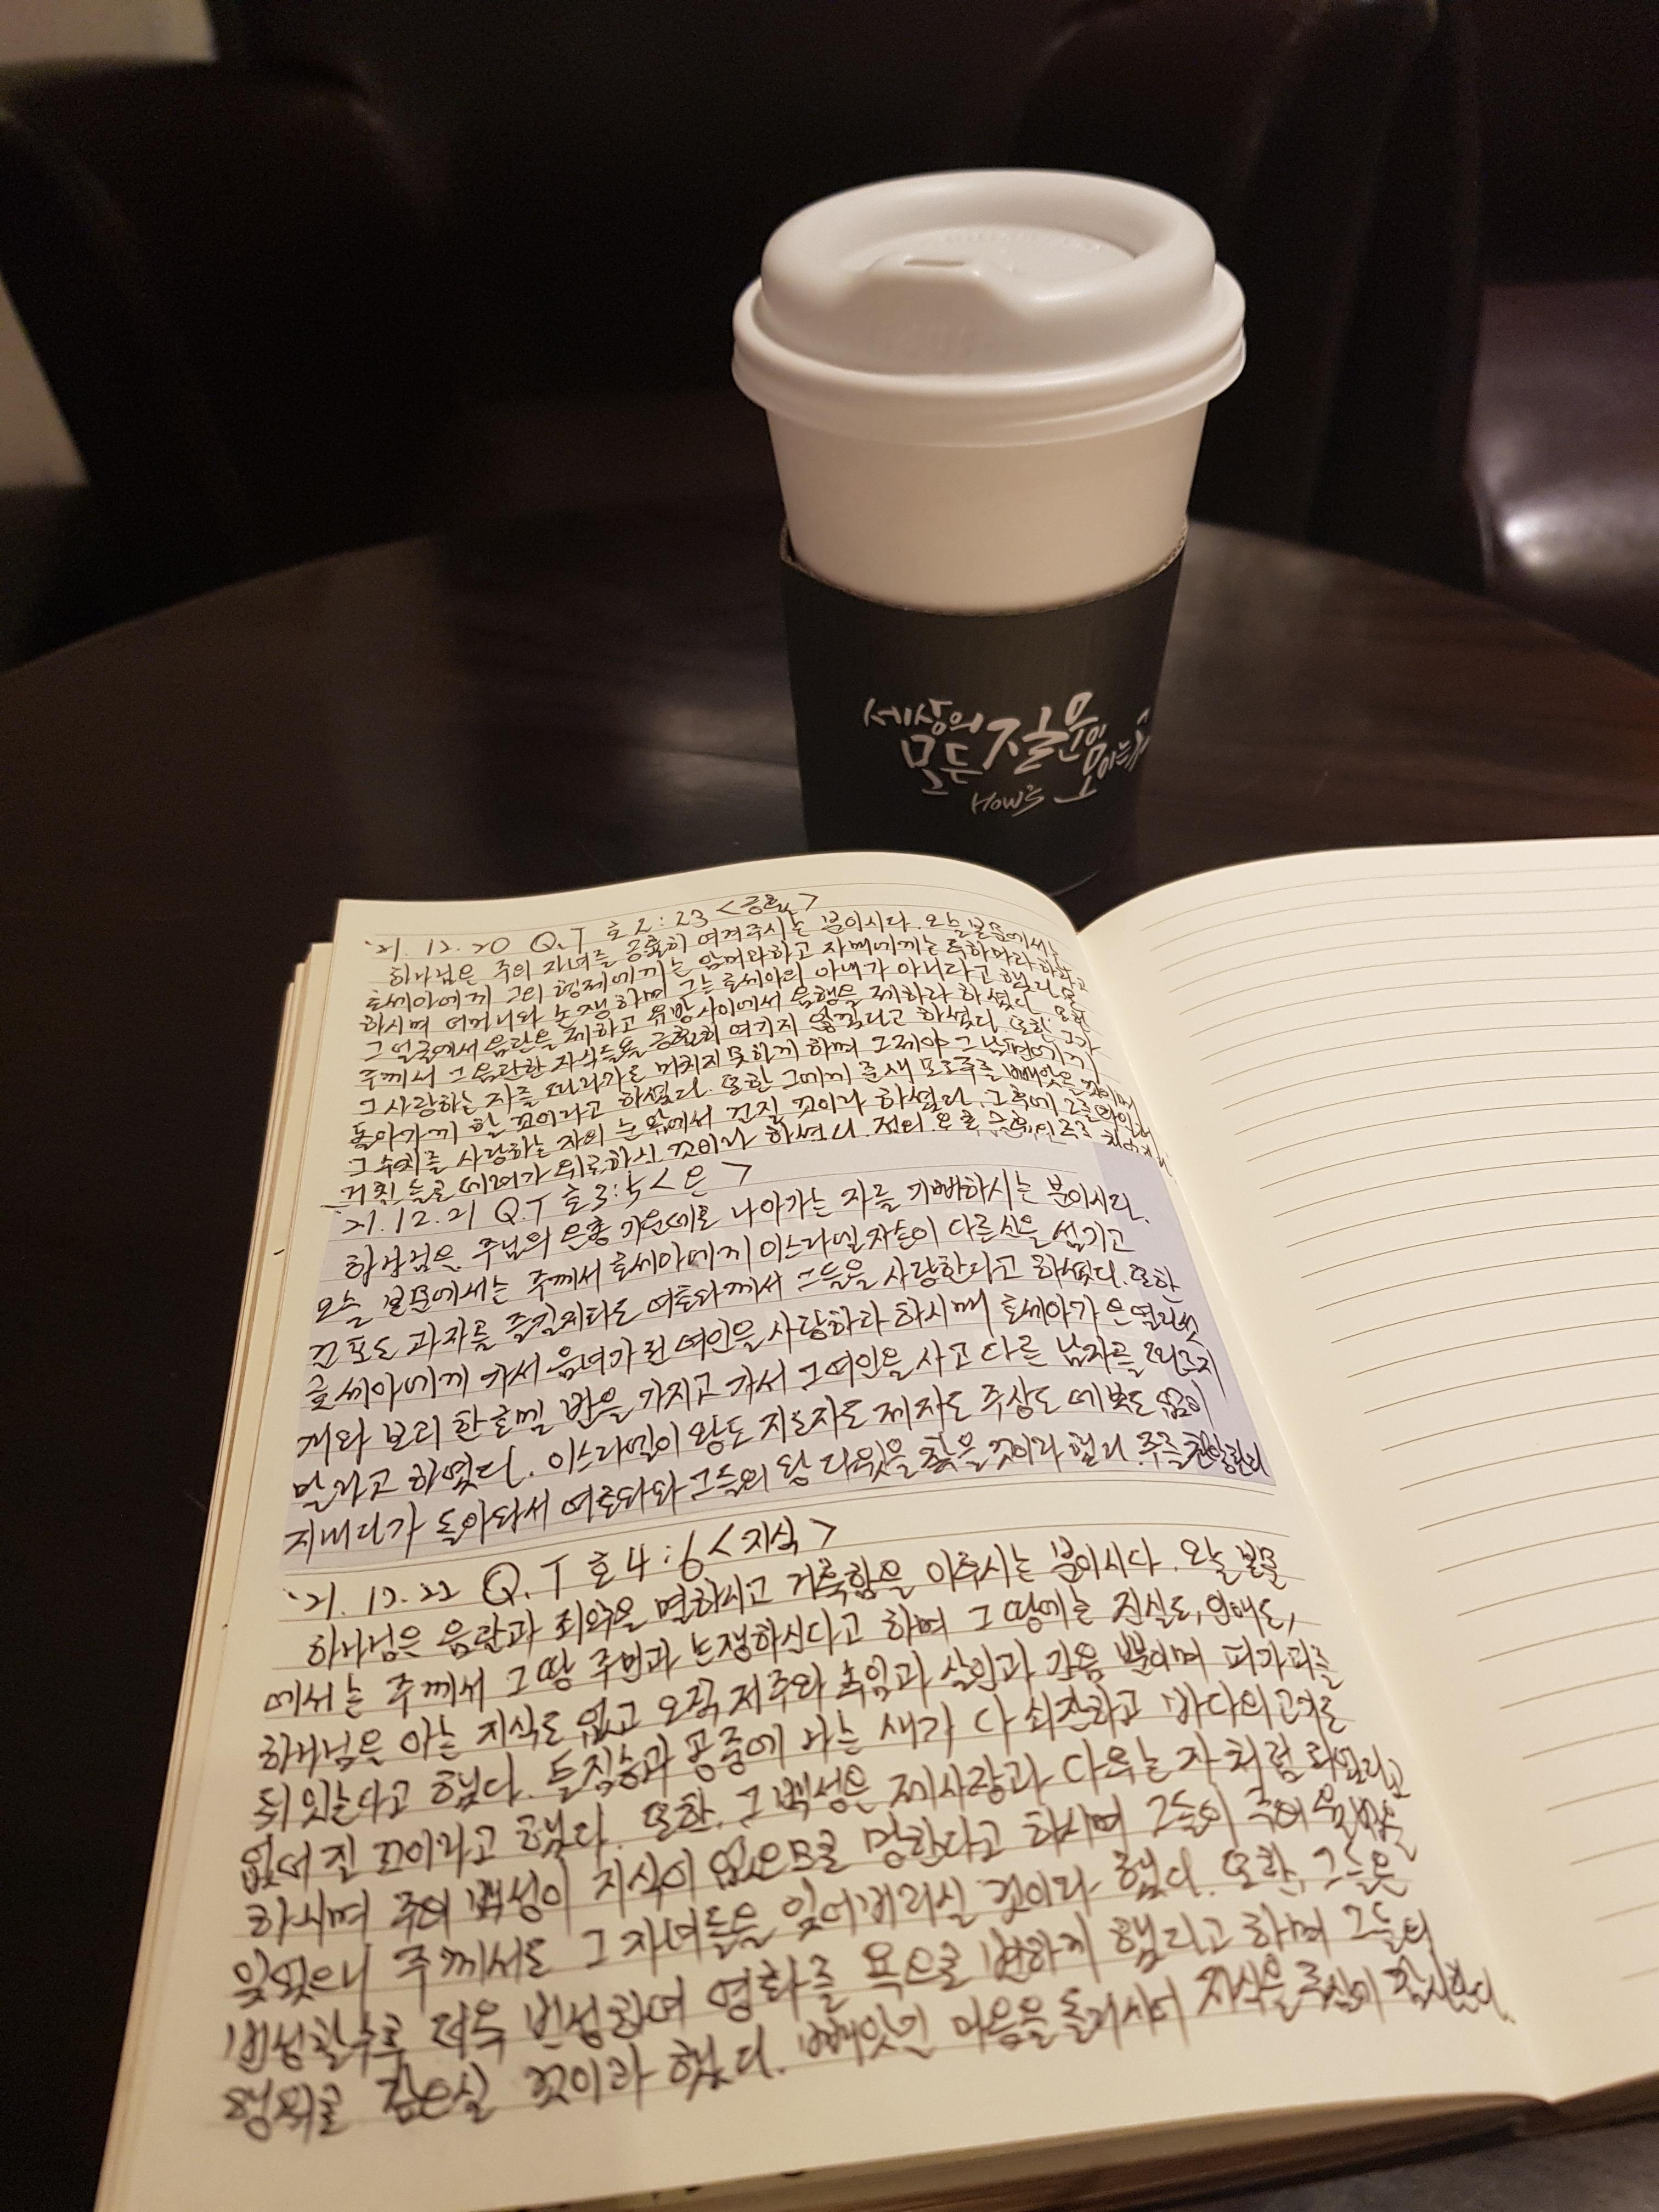 세상의
모든 질문이
모이는
How's
'21. 12. 20 Q.T 호2:23 <긍휼>
하나님은 주의 자녀를 긍휼히 여겨주시는 분이시다. 오늘 본문에서는
호세아에게 그의 형제에게는 암미라하고 자매에게는 루하마라 하라고
하시며 어머니와 논쟁하며 그는 호세아의 아내가 아니라고 했다
그 얼굴에서 음란을 제하고 유방사이에서 음행을 제하라 하셨다. 또한
주께서 그 음란한 자식들을 긍휼히 여기지 않겠다고 하셨다 또한 그가
그 사랑하는 자를 따라가도 미치지 못하게 하며 그제야 그 남편에게
돌아가게 할 것이라고 하셨다. 또한 그에게 준 새 포도주를 빼앗은 것이며
그 수치를 사랑하는 자의 눈 앞에서 건질 것이라 하셨다. 그 후에 그를
거친 들로 데려가 위로하실 것이라 하셨으니
'21. 12. 21 Q.T 호3:5 <은>
하나님은 주님의 은총 가운데로 나아가는 자를 기뻐하시는 분이시다.
오늘 본문에서는 주께서 호세아에게 이스라엘 자손이 다른 신을 섬기고
건포도 과자를 즐길지라도 여호와께서 그들을 사랑한다고 하셨다. 또한
호세아에게 가서 음녀가 된 여인을 사랑하라 하시매 호세아가 은 열다섯
개와 보리 한 호멜 반을 가지고 가서 그 여인을 사고 다른 남자를
말라고 하였다. 이스라엘이 왕도 지도자도 제사도 주상도 에봇도 없이
지내다가 돌아와서 여호와와 그들의 왕 다윗을 찾을 것이라 했다. 주를
'21. 12. 22 Q.T 호4:6 <지식>
하나님은 음란과 죄악을 멸하시고 거룩함을 이루시는 분이시다. 오늘 본문
에서는 주께서 그 땅 주민과 논쟁하신다고 하며 그 땅에는 진실도, 인애도,
하나님을 아는 지식도 없고 오직 저주와 속임과 살인과 간음 뿐이며 피가 피를
뒤 잇는다고 했다. 들짐승과 공중에 나는 새가 다 쇠잔하고 바다의 고기도
없어질 것이라고 했다. 또한, 그 백성은 제사장과 다투는 자처럼 되었다고
하시며 주의 백성이 지식이 없으므로 망한다고 하시며 그들이 주의 율법을
잊었으니 주께서도 그 자녀들을 잊어버리실 것이라 했다. 또한, 그들은
번성할수록 더욱 범죄하며 영화를 욕으로 변하게 했다고 하며 그들의
행위로 갚으실 것이라 했다. 빼앗긴 마음을 돌리시어 지식을